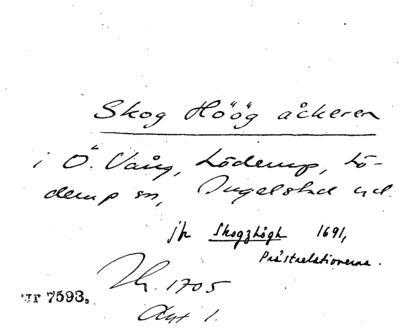 Skog Höög åckeren
i Ö. Vång, Löderup, Lö-
derup sn, Ingelstad hd.
jfr Skogzhögh 1691,
Prästrelationerna.
Jb. 1705
Avt 1.
ur 7593.